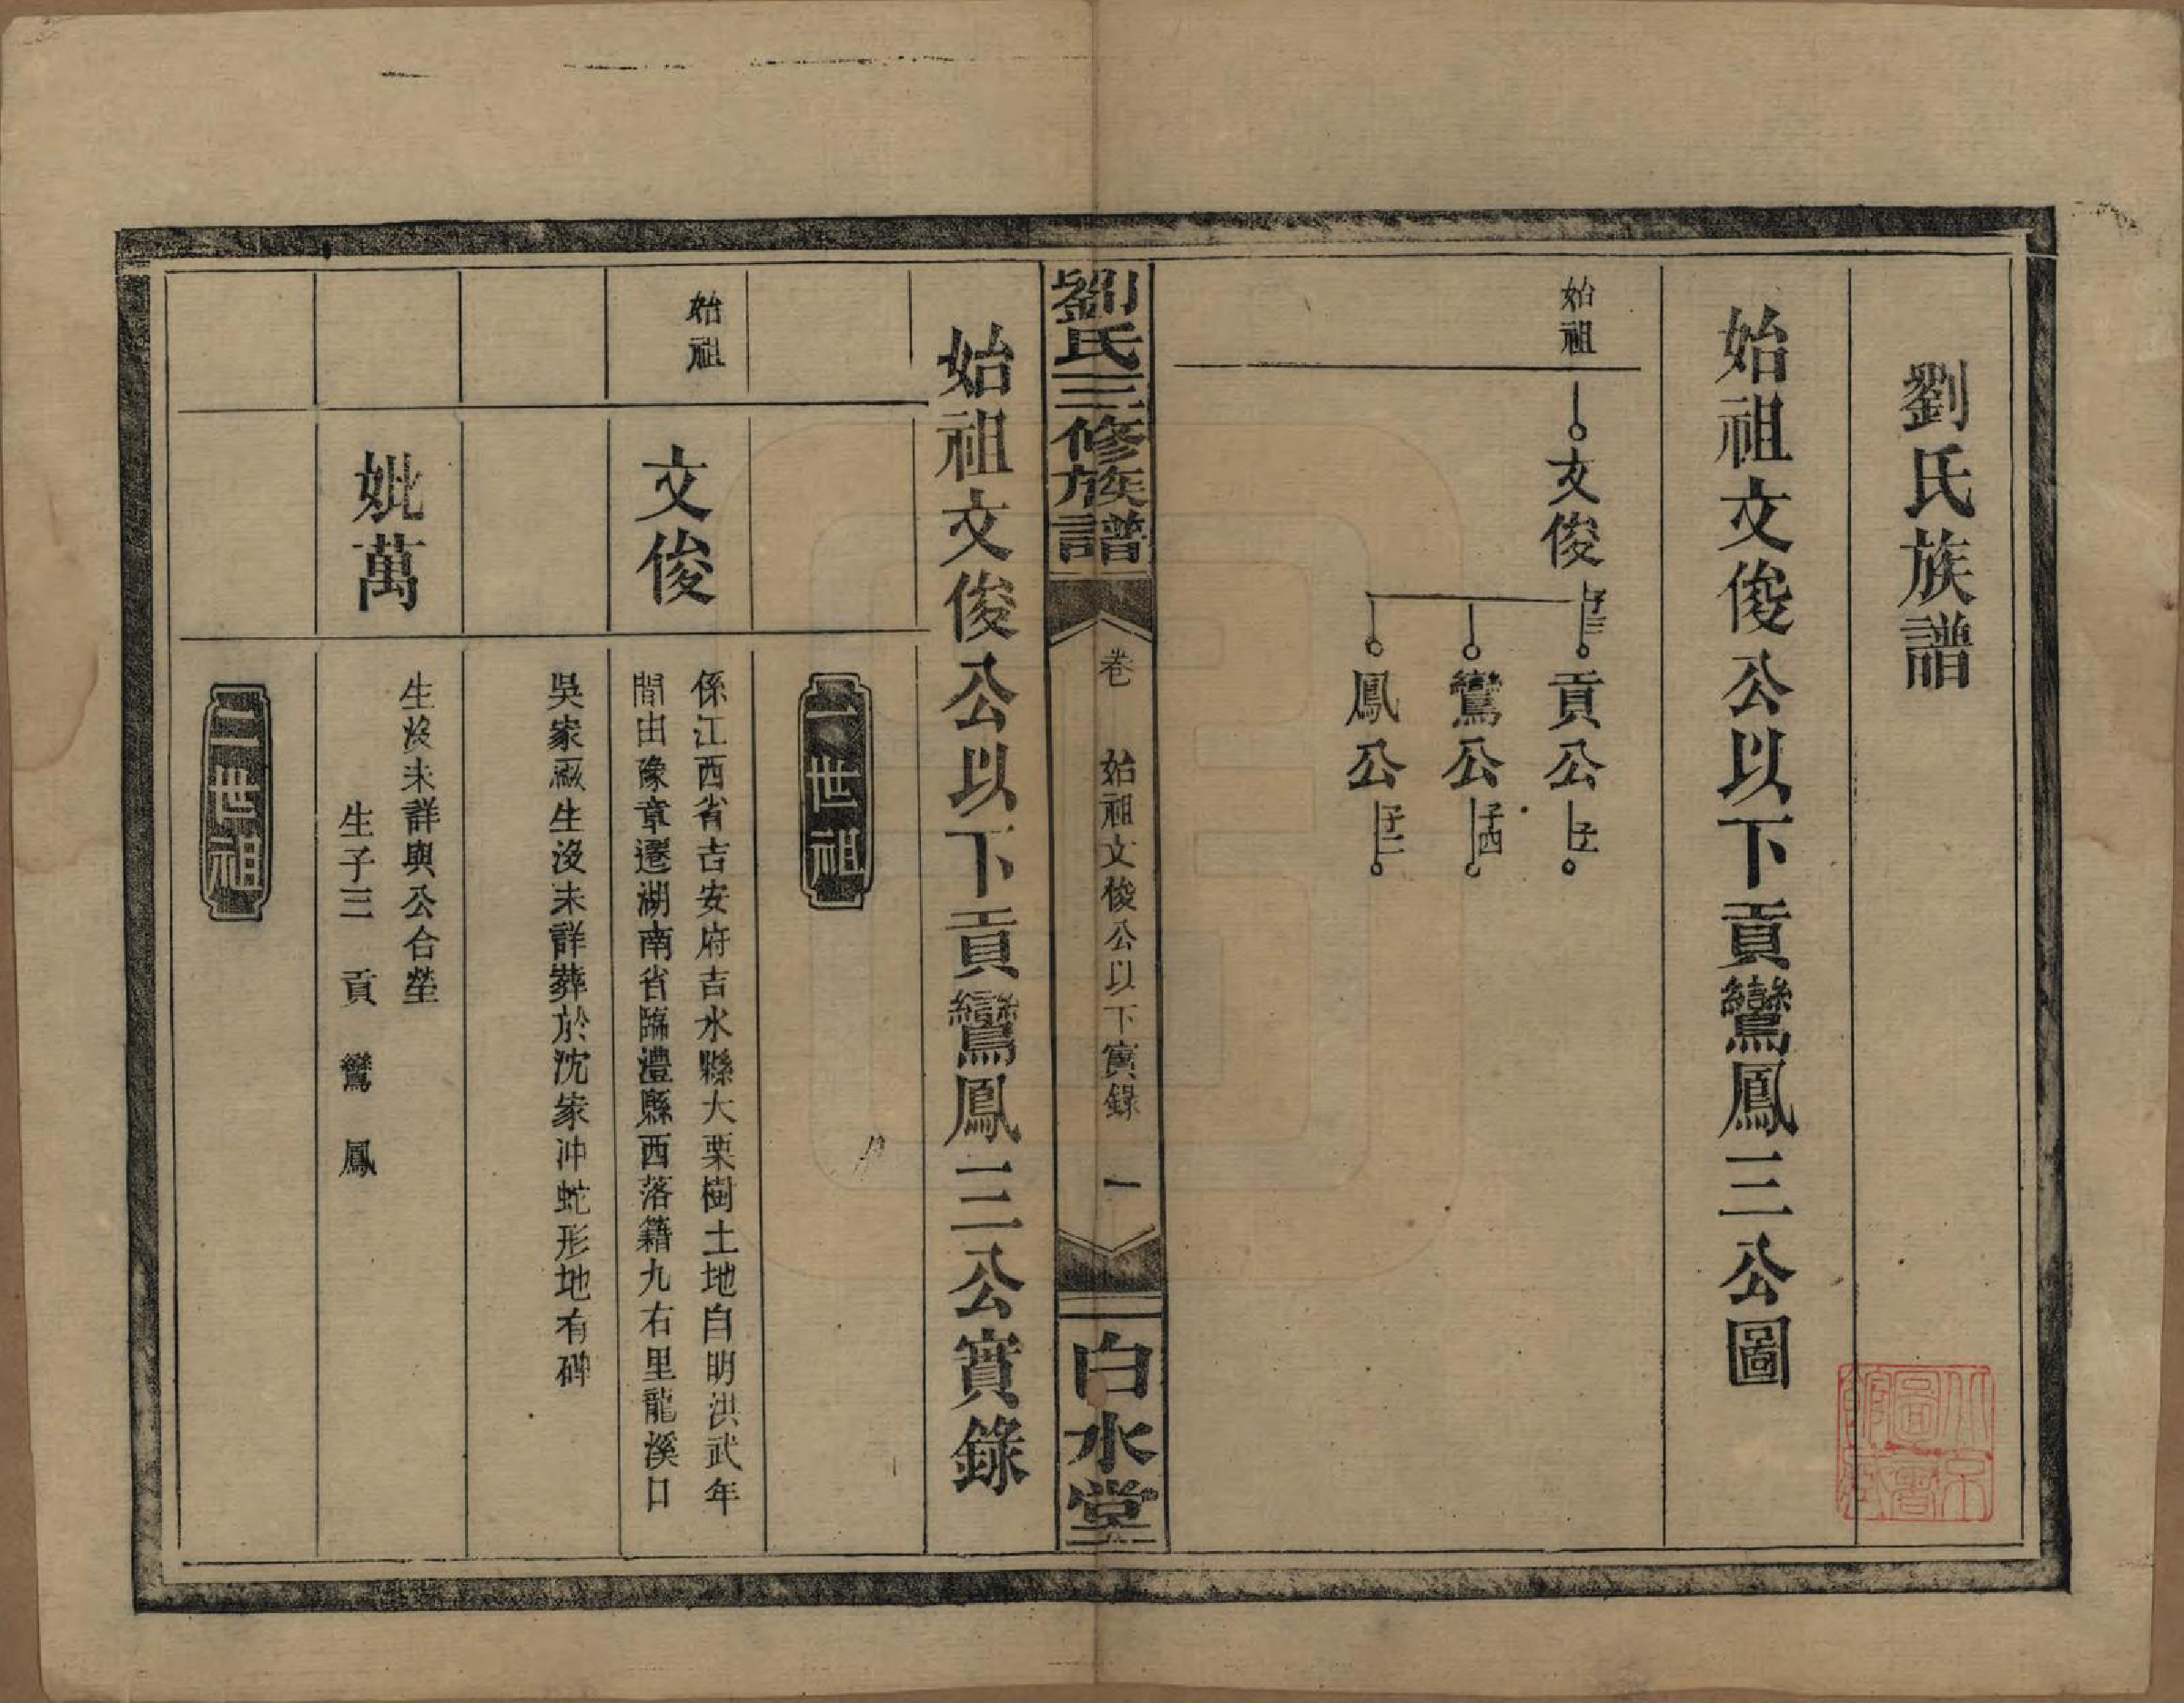 劉氏族譜
始祖文俊公以下貢鸞鳳三公圖
始祖
文俊
子三
貢公
子一
鸞公
子四
鳳公
子二
劉氏三修族譜
卷
始祖文俊公以下實錄
一
白水堂
始祖文俊公以下貢鸞鳳三公實錄
一世祖
始祖
文俊
係江西省吉安府吉水縣大栗樹土地自明洪武年
間由豫章遷湖南省臨澧縣西落籍九右里龍溪口
吳家廠生沒未詳葬於沈家冲蛇形地有碑
妣萬
生沒未詳與公合塋
生子三 貢 鸞 鳳
二世祖
北京
圖書
館藏